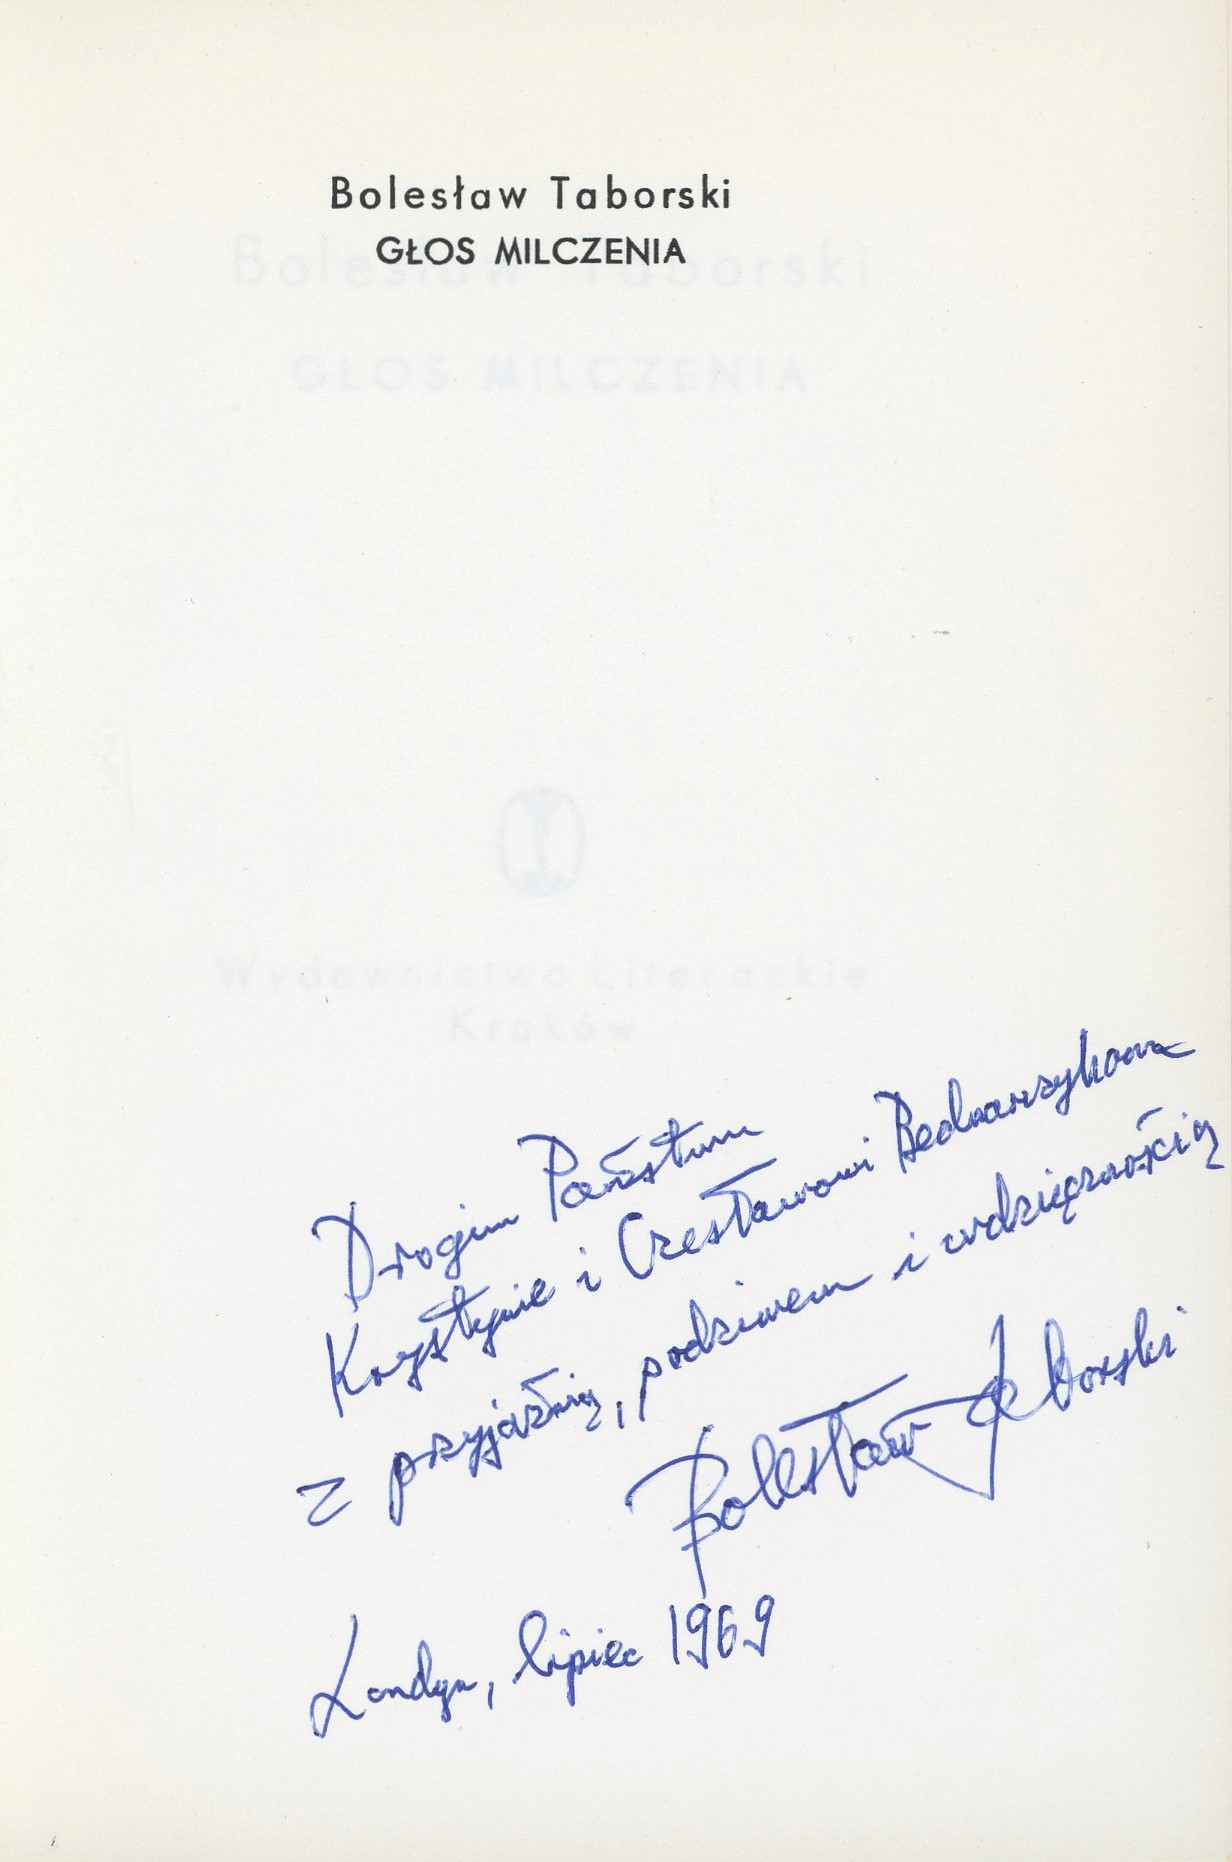 Bolesław Taborski
GŁOS MILCZENIA
Bolesław Taborski
GŁOS MILCZENIA
Wydawnictwo Literackie
Kraków
Drogim Państwu
Krystynie i Czesławowi Bednarczykom
z przyjaźnią, podziwem i wdzięcznością
Bolesław Taborski
Londyn, lipiec 1969